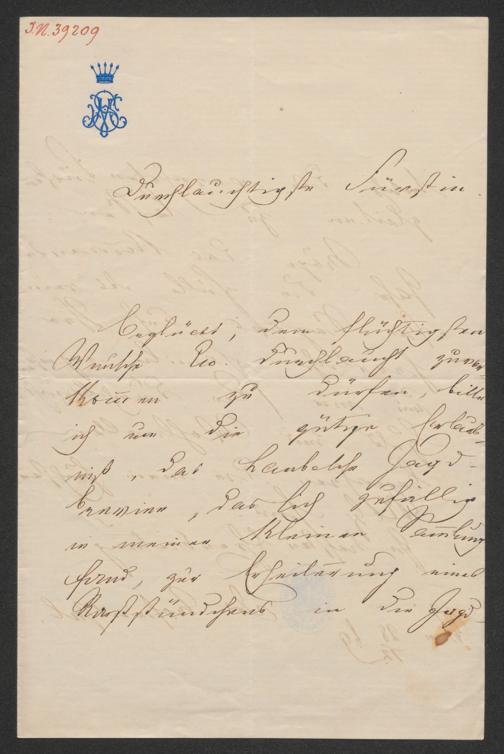 J.N. 39209
Durchlauchtigste Fürstin
Beglückt, dem flüchtigsten
Wunsche Ew. Durchlaucht zuvor-
kommen zu dürfen, bitte
ich um die gütige Erlaub-
niß, das Laubesche Jagd-
brevier, das sich zufällig
in meiner kleinen Samlung
fand, zur Erheiterung eines
Raststündchens in die Jagd-